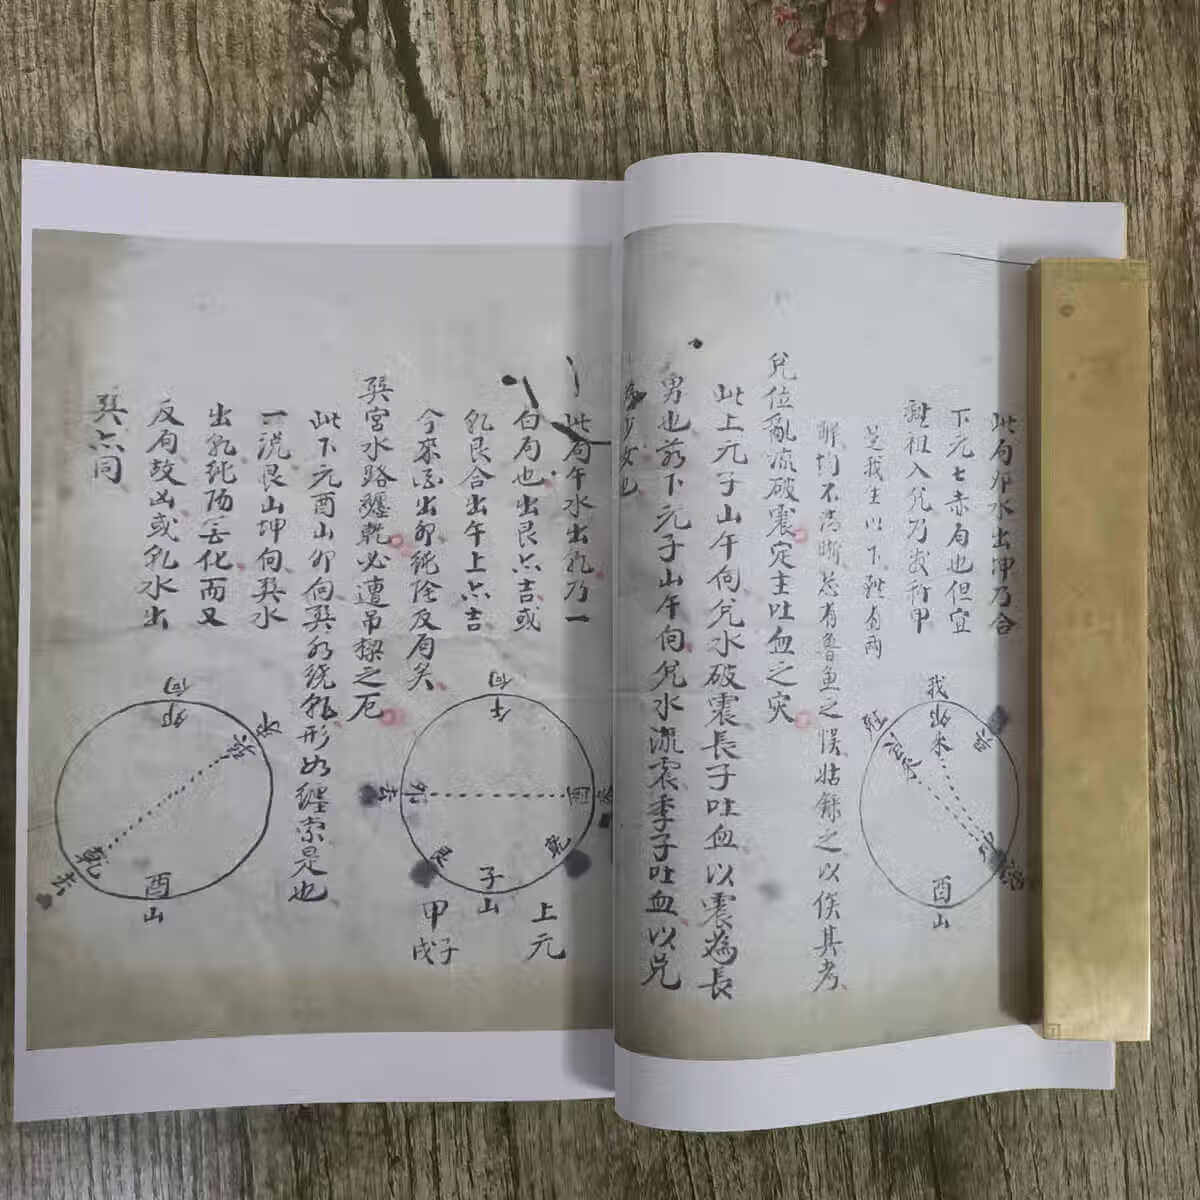 此局卯水出坤乃合
下元七赤局也但宜
祖入兌乃
是我生以下
解均不清晰恐有魯魚之悮姑錄之以俟其考
我
出
水
酉
山
兌位亂流破震定主吐血之灾
此上元子山午向兌水破震長子吐血以震為長
男也若下元子山午向兌水流震季子吐血以兌
為少女也
此局午水出乾乃一
白局也出艮亦吉或
乾艮合出午上亦吉
今來酉出卯純陰反局矣
午
向
酉
來
卯
去
乾
艮
子
山
上元
甲子
戊
巽宮水路纏乾必遭吊樑之厄
此下元酉山卯向巽水繞乾形如纏索是也
一流艮山坤向巽水
出乾純陽無化而又
反局故凶或乾水出
巽亦同
卯
向
水
乾
去
酉
山